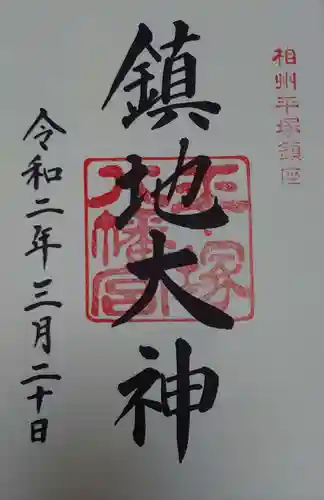 相州平塚鎮座
鎮地大神
平塚
八幡宮
令和二年三月二十日